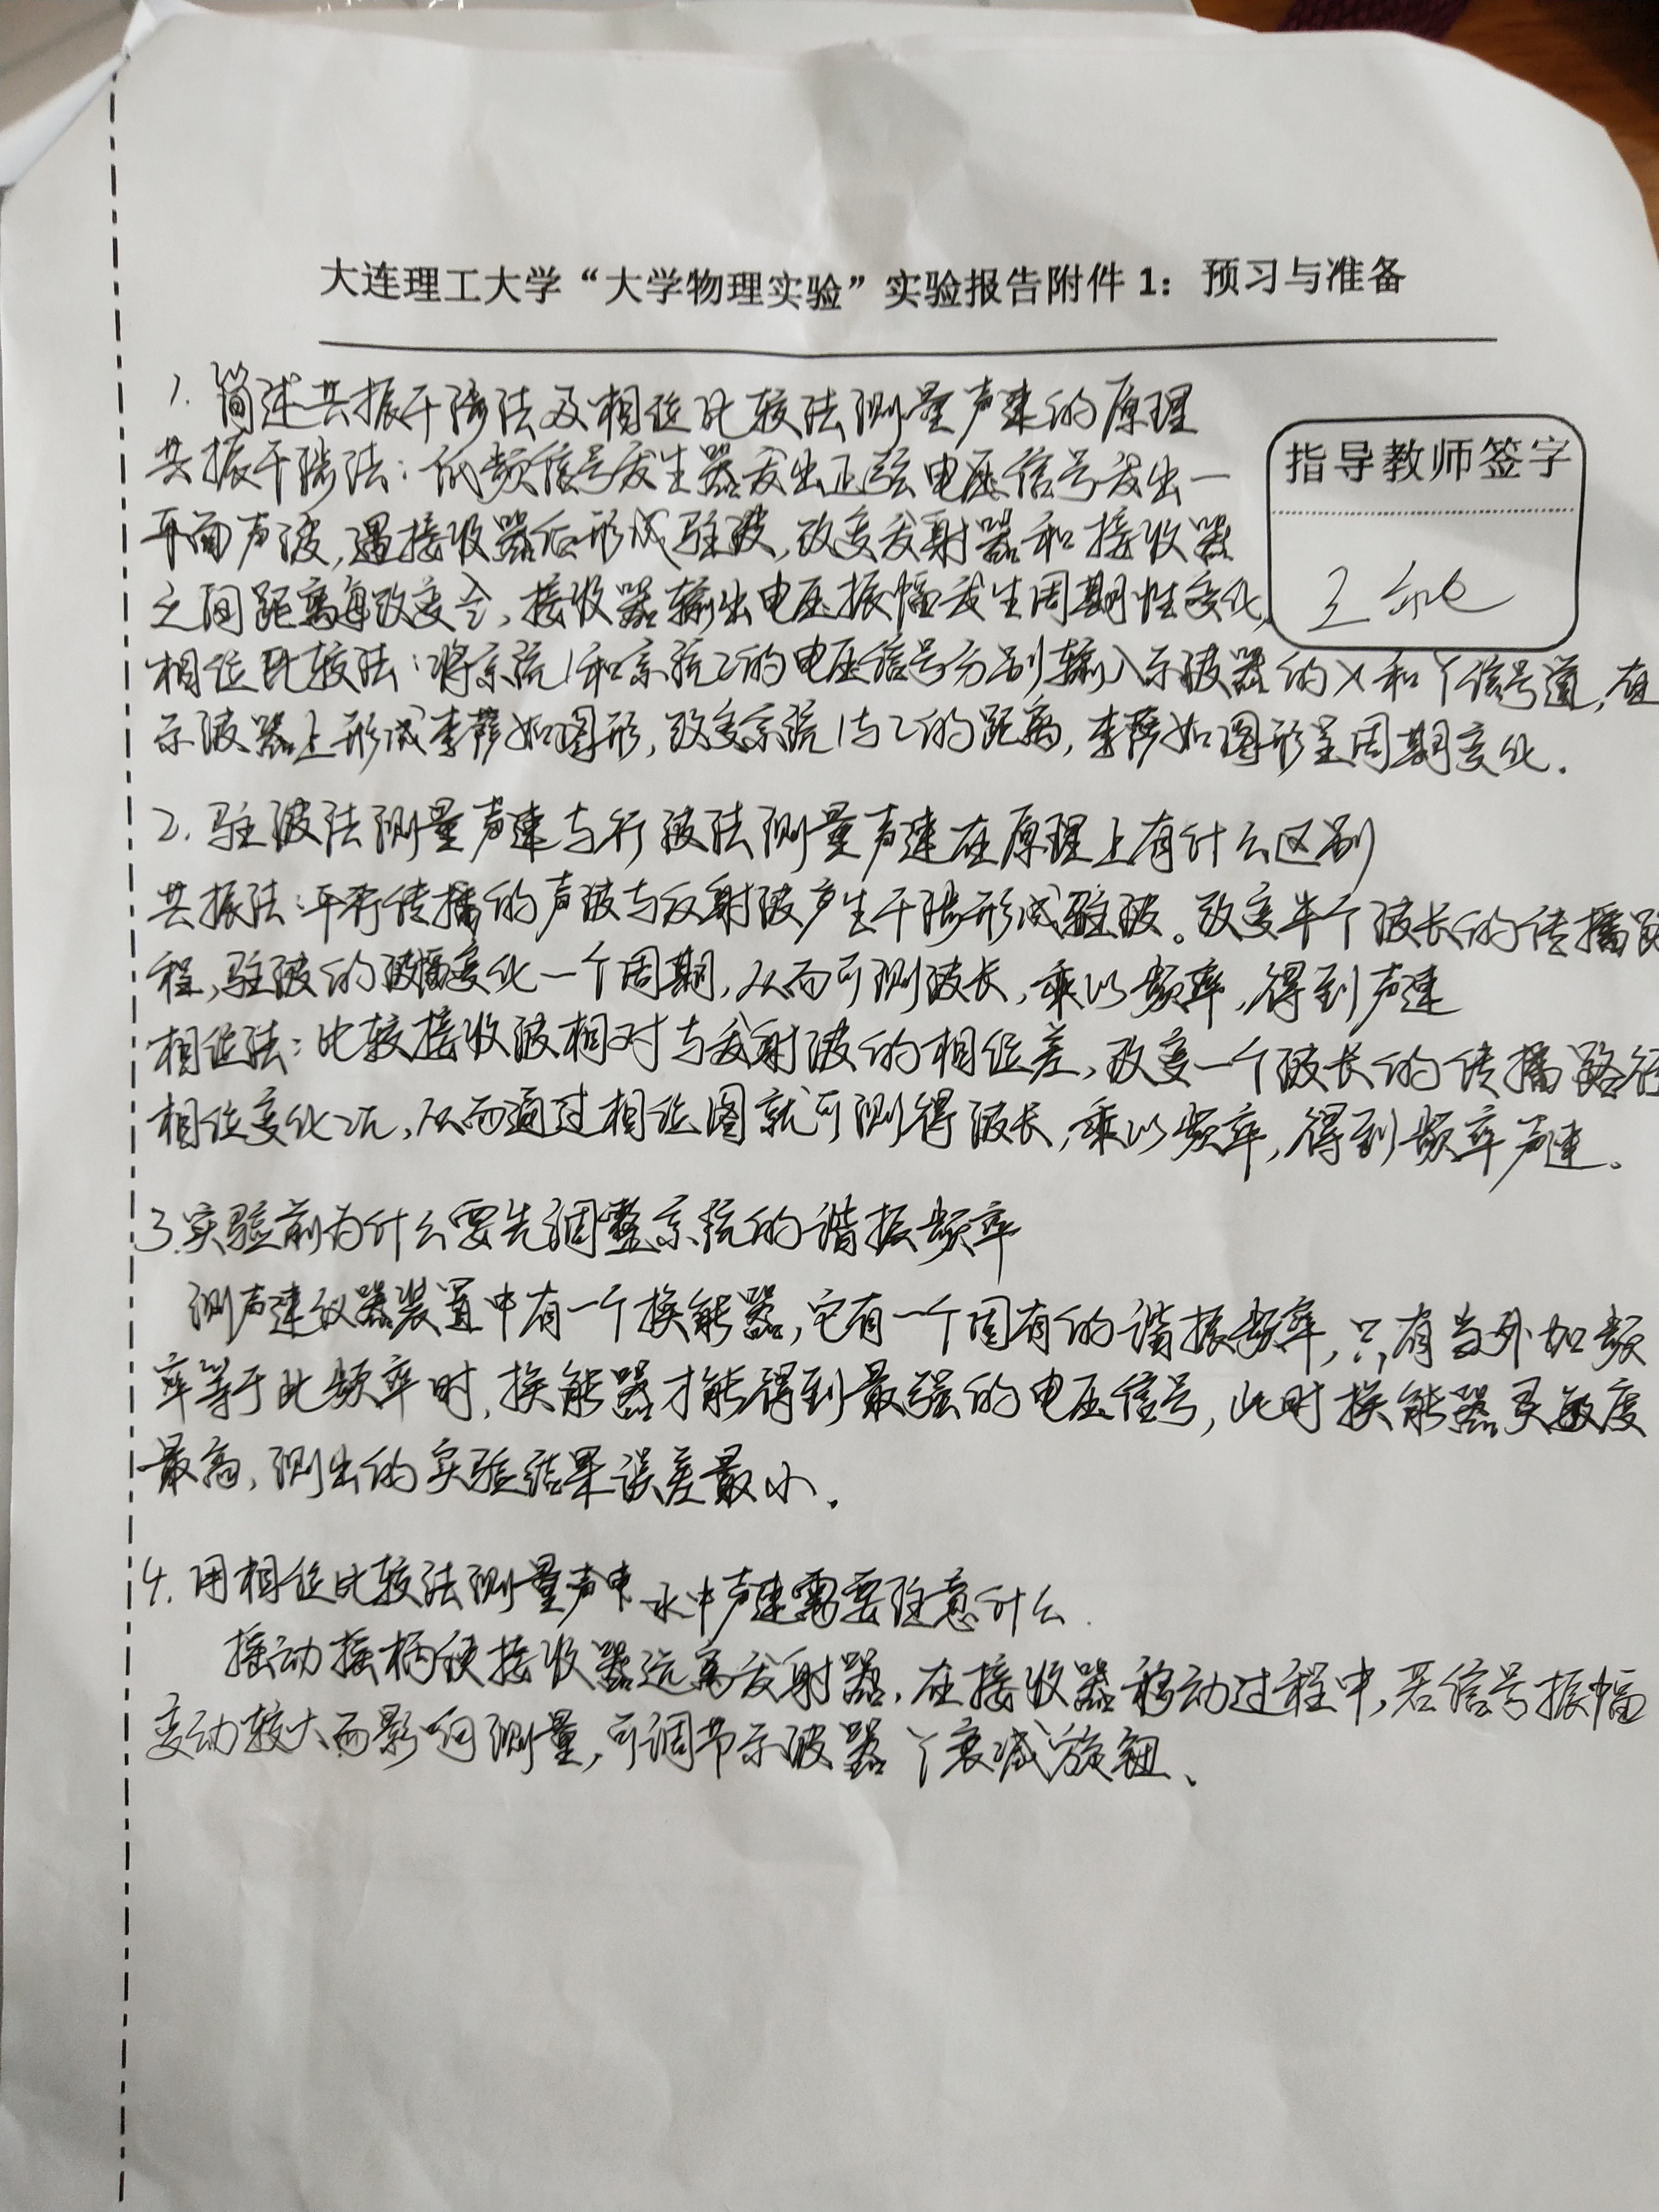 大连理工大学“大学物理实验”实验报告附件1：预习与准备
1. 简述共振干涉法及相位比较法测量声速的原理
指导教师签字
共振干涉法：低频信号发生器发出正弦电压信号发出一
平面声波，遇接收器后形成驻波，改变发射器和接收器
之间距离每改变，接收器输出电压振幅发生周期性变化，
相位比较法：将系统1和系统2的电压信号分别输入示波器的X和Y信号道，在
示波器上形成李萨如图形，改变系统1与2的距离，李萨如图形呈周期变化．
2. 驻波法测量声速与行波法测量声速在原理上有什么区别
共振法：平行传播的声波与反射波产生干涉形成驻波。改变半个波长的传播路
程，驻波的波幅变化一个周期，从而可测波长，乘以频率，得到声速
相位法：比较接收波相对与发射波的相位差，改变一个波长的传播路径
相位变化2π，从而通过相位图就可测得波长，乘以频率，得到频率声速。
3.实验前为什么要先调整系统的谐振频率
测声速仪器装置中有一个换能器，它有一个固有的谐振频率，只有当外加频
率等于此频率时，换能器才能得到最强的电压信号，此时换能器灵敏度
最高，测出的实验结果误差最小．
4. 用相位比较法测量声中水中声速需要注意什么．
摇动摇柄使接收器远离发射器，在接收器移动过程中，若信号振幅
变动较大而影响测量，可调节示波器Y衰减旋钮、